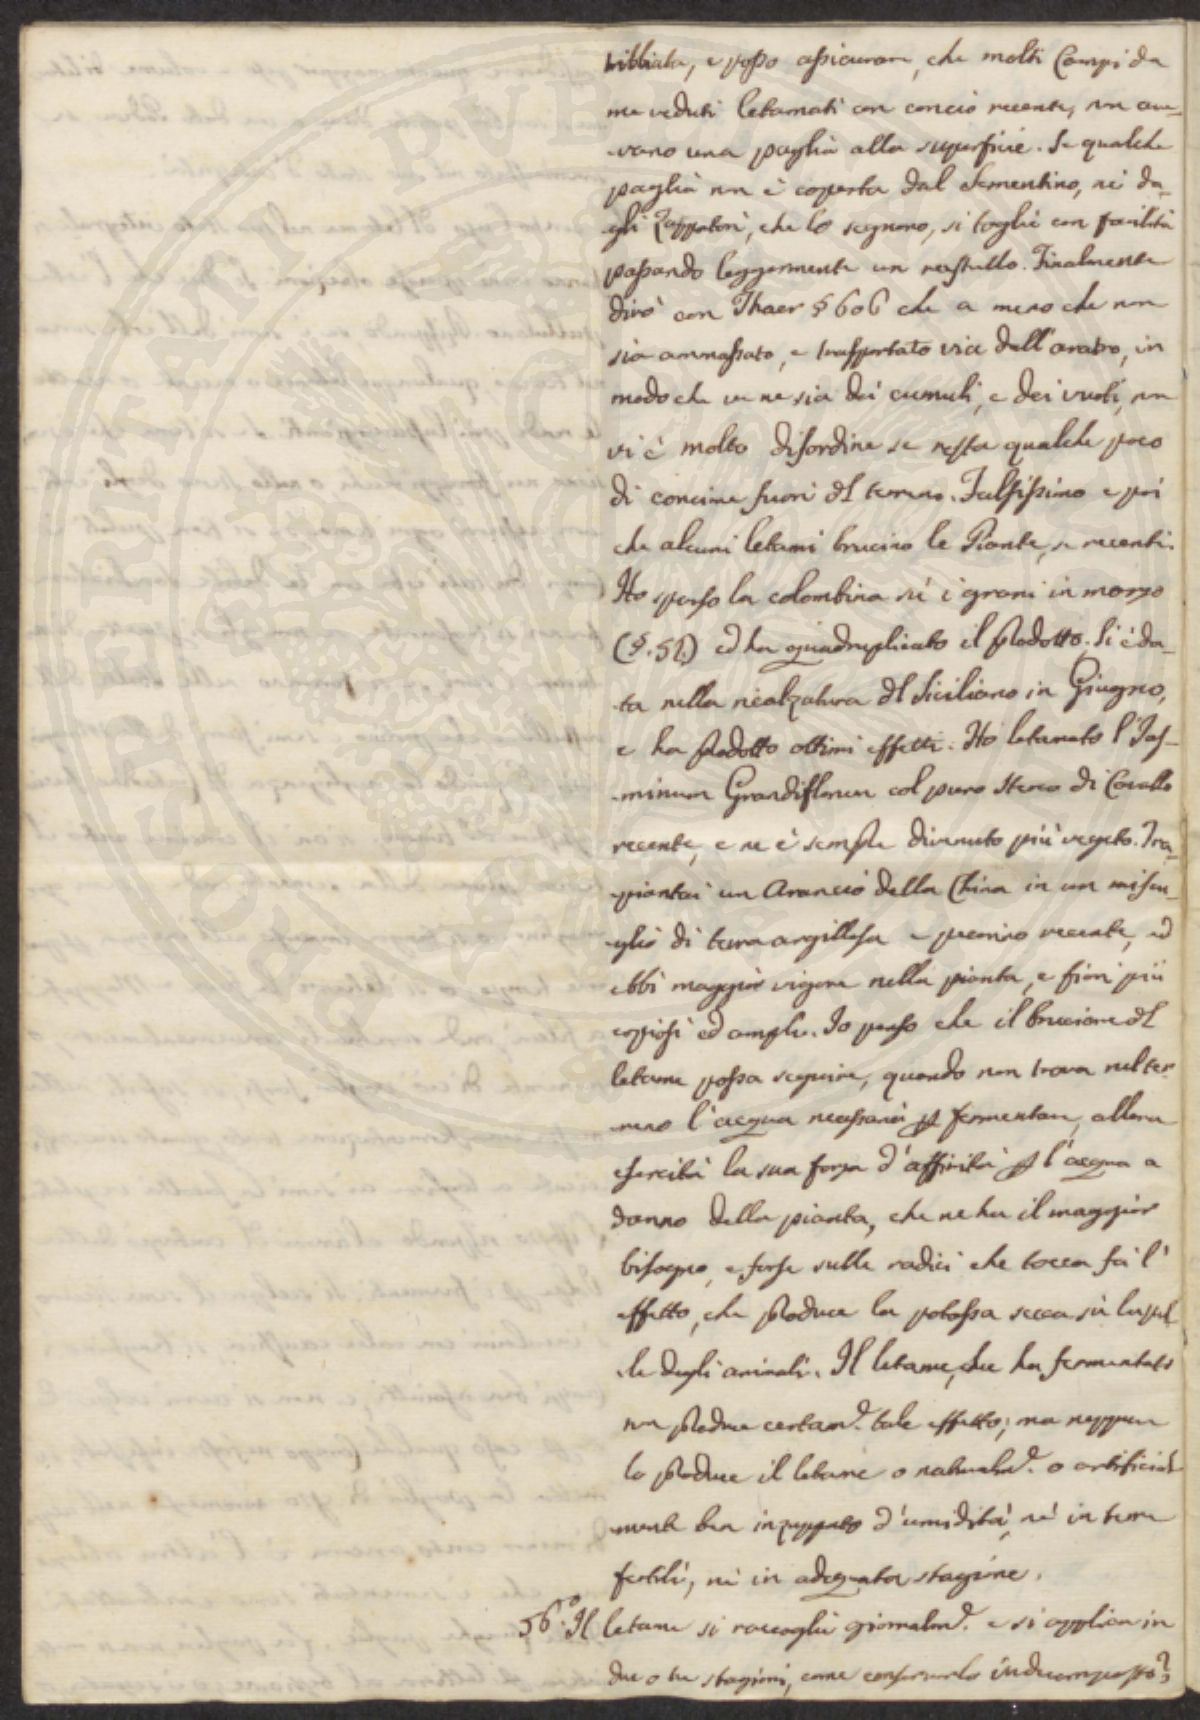 tribbiata, e posso assicurare, che molti Campi da
me veduti letamati con concio recente, non ave-
vano una paglia alla superficie. Se qualche
paglia non è coperta dal Sementino, nè da-
gli Zappatori, che lo seguono, si toglie con facilità
passando leggermente un rastrello. Finalmente
dirò con Thaer § 606 che a meno che non
sia ammassato, e trasportato via dall'aratro, in
modo che ve ne sia dei cumuli, e dei vuoti, non
vi è molto disordine se resta qualche poco
di concime fuori del terreno. Falsissimo e poi
che alcuni letami brucino le Piante, se recenti.
Ho sparso la colombina sù i grani in marzo
(§. 51.) ed ha quadruplicato il prodotto. Si è da-
ta nella rincalzatura del Siciliano in Giugno,
e ha prodotto ottimi effetti. Ho letamato l'Jas-
minum Grandiflorum col puro sterco di Cavallo
recente, e ne è sempre divenuto più vegeto. Tra-
piantai un Arancio della China in un miscu-
glio di terra argillosa e pecorino recente, ed
ebbi maggior vigore nella pianta, e fiori più
copiosi ed ampli. Io penso che il bruciore del
letame possa seguire, quando non trova nel ter-
reno l'acqua necessaria p fermentare, allora
esercita la sua forza d'affinità p l'acqua a
danno della pianta, che ne ha il maggior
bisogno, e forse sulle radici che tocca fà l'
effetto, che produce la potassa secca sù la pel-
le degli animali. Il letame, che ha fermentato
non produce certam.e tale effetto; ma neppure
lo produce il letame o naturalm.e o artificial
mente ben inzuppato d'umidità, nè in terre
fertili, nè in adequata stagione.
56.° Il letame si raccoglie giornalm.e e si applica in
due o tre stagioni, come conservarlo indecomposto?